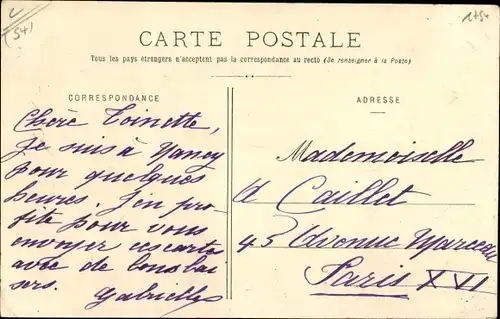 (541
CARTE POSTALE
Tous les pays étrangers n'acceptent pas la correspondance au recto (Se renseigner à la Poste)
CORRESPONDANCE
Chère Toinette,
Je suis à Nancy
pour quelques
heures. J'en pro-
fite pour vous
envoyer ces cartes
avec de bons bai
sers.
Gabrielle
ADRESSE
Mademoiselle
Caillet
43 Avenue Marceau
Paris XVI